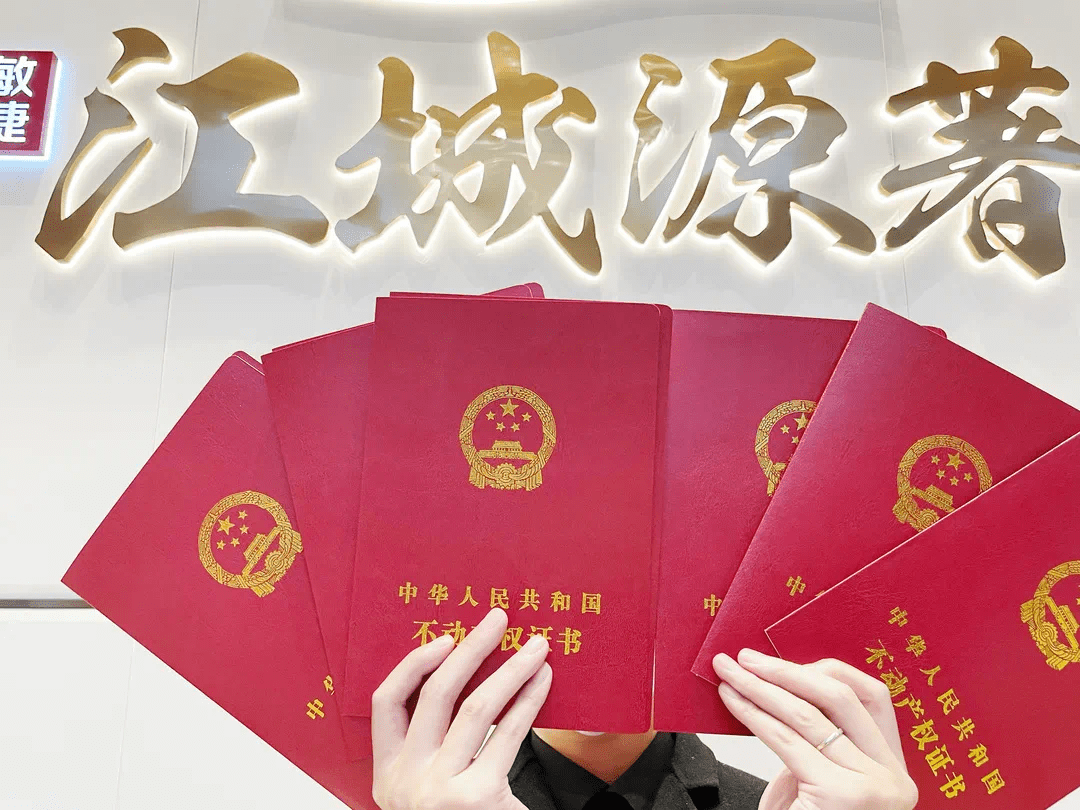 敏捷
江城源著
中华人民共和国
不动产权证书
中
中
中
中华人民共和国
不动产权证书